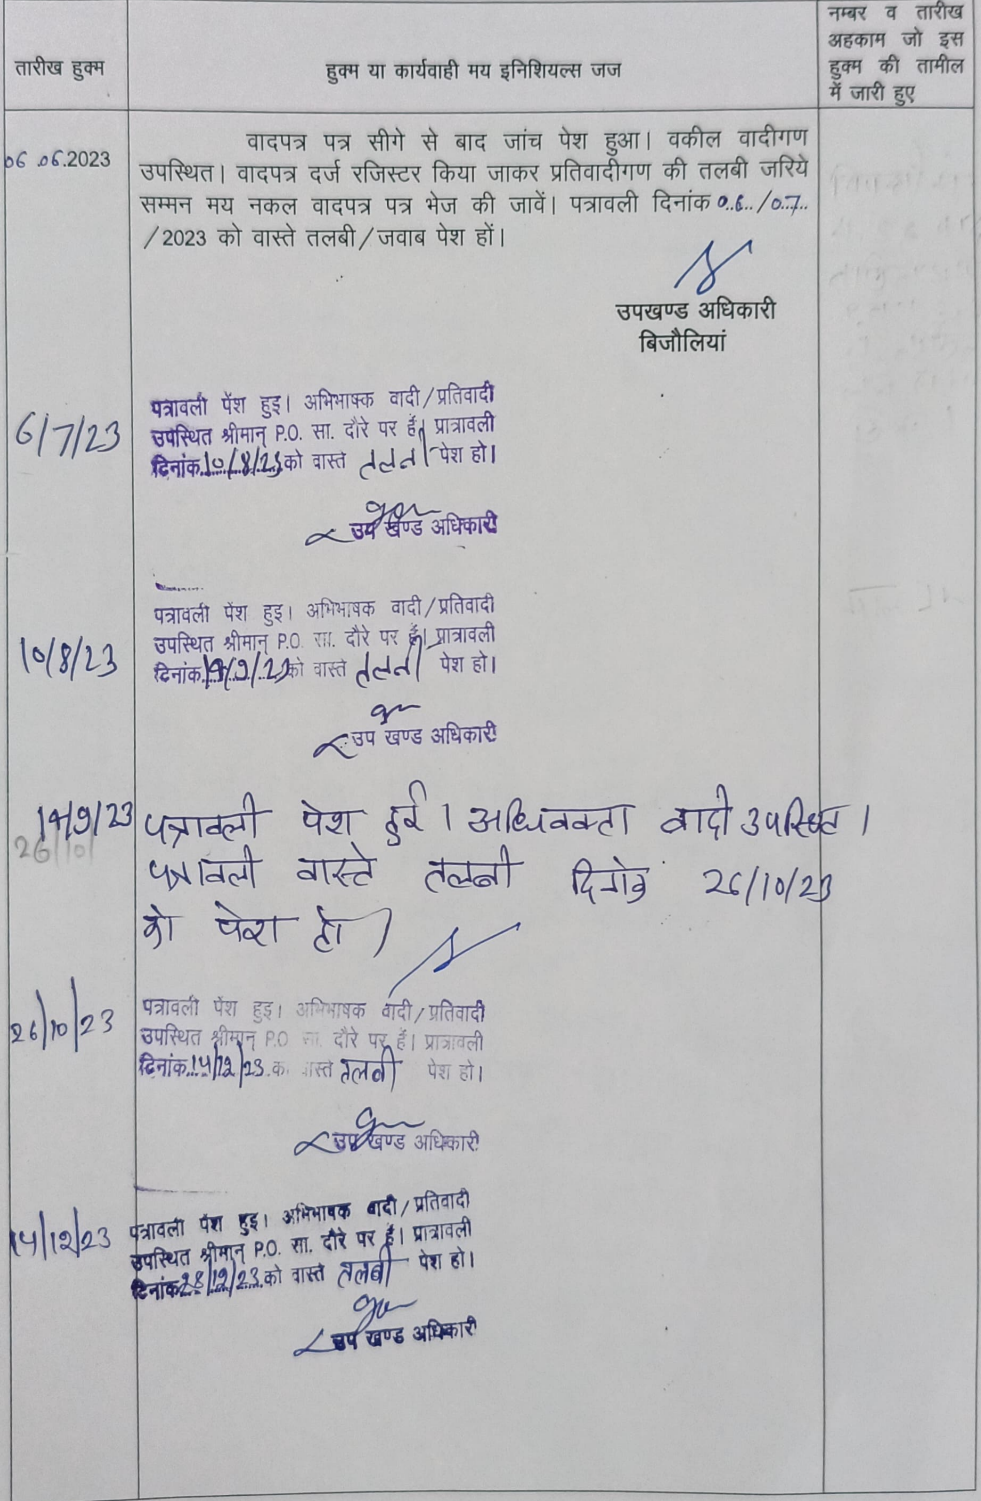 तारीख हुक्म
हुक्म या कार्यवाही मय इनिशियल्स जज
नम्बर व तारीख
अहकाम जो इस
हुक्म की तामील
में जारी हुए
06.06.2023
वादपत्र पत्र सीगे से बाद जांच पेश हुआ। वकील वादीगण
उपस्थित। वादपत्र दर्ज रजिस्टर किया जाकर प्रतिवादीगण की तलबी जरिये
सम्मन मय नकल वादपत्र पत्र भेज की जावें। पत्रावली दिनांक 06/07
/2023 को वास्ते तलबी/जवाब पेश हों।
उपखण्ड अधिकारी
बिजौलियां
6/7/23
पत्रावली पेंश हुइ। अभिभाषक वादी/प्रतिवादी
उपस्थित श्रीमान् P.O. सा. दौरे पर हैं। प्रात्रावली
दिनांक 10/8/23 को वास्ते तलबी पेश हो।
उप खण्ड अधिकारी
10/8/23
पत्रावली पेंश हुइ। अभिभाषक वादी/प्रतिवादी
उपस्थित श्रीमान् P.O. सा. दौरे पर हैं। प्रात्रावली
दिनांक 14/9/23 को वास्ते तलबी पेश हो।
उप खण्ड अधिकारी
14/9/23
26/10/
पत्रावली पेश हुई। अधिवक्ता वादी उपस्थित।
पत्रावली वास्ते तलबी दिनांक 26/10/23
को पेश हो।
26/10/23
पत्रावली पेंश हुइ। अभिभाषक वादी/प्रतिवादी
उपस्थित श्रीमान् P.O. सा. दौरे पर हैं। प्रात्रावली
दिनांक 14/12/23 को वास्ते तलबी पेश हो।
उप खण्ड अधिकारी
14/12/23
पत्रावली पेंश हुइ। अभिभाषक वादी/प्रतिवादी
उपस्थित श्रीमान् P.O. सा. दौरे पर हैं। प्रात्रावली
दिनांक 28/12/23 को वास्ते तलबी पेश हो।
उप खण्ड अधिकारी